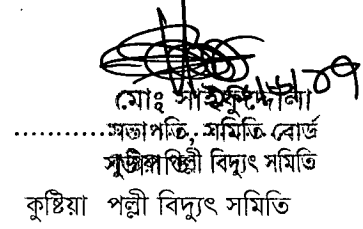 মোঃ সাইফুদ্দৌলা
সভাপতি, সমিতি বোর্ড
পল্লী বিদ্যুৎ সমিতি
কুষ্টিয়া পল্লী বিদ্যুৎ সমিতি